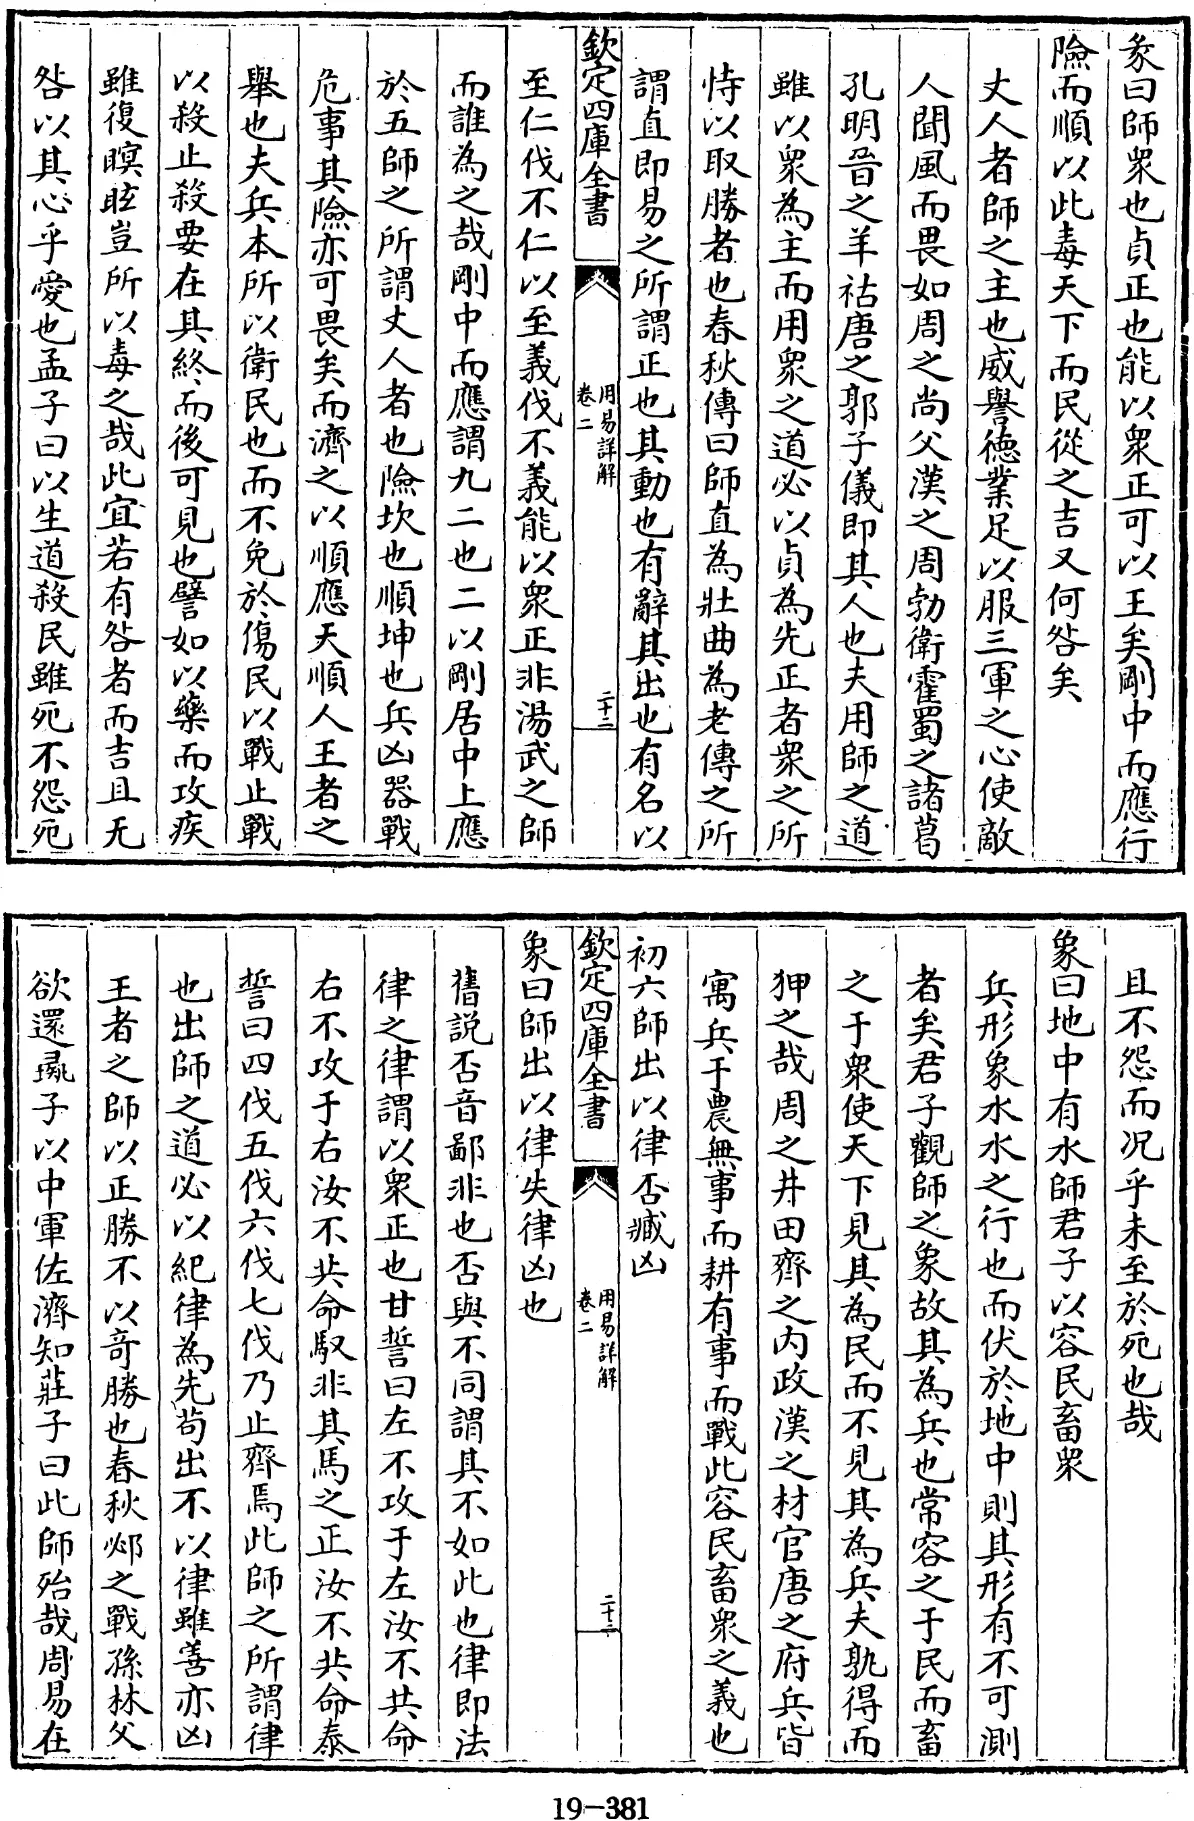 彖曰師衆也貞正也能以衆正可以王矣剛中而應行
險而順以此毒天下而民從之吉又何咎矣
丈人者師之主也威譽德業足以服三軍之心使敵
人聞風而畏如周之尚父漢之周勃衛霍蜀之諸葛
孔明晉之羊祜唐之郭子儀即其人也夫用師之道
雖以衆為主而用衆之道必以貞為先正者衆之所
恃以取勝者也春秋傳曰師直為壯曲為老傳之所
謂直即易之所謂正也其動也有辭其出也有名以
欽定四庫全書
用易詳解
卷二
二十二
至仁伐不仁以至義伐不義能以衆正非湯武之師
而誰為之哉剛中而應謂九二也二以剛居中上應
於五師之所謂丈人者也險坎也順坤也兵凶器戰
危事其險亦可畏矣而濟之以順應天順人王者之
舉也夫兵本所以衛民也而不免於傷民以戰止戰
以殺止殺要在其終而後可見也譬如以藥而攻疾
雖復瞑眩豈所以毒之哉此宜若有咎者而吉且无
咎以其心乎愛也孟子曰以生道殺民雖死不怨死
且不怨而况乎未至於死也哉
象曰地中有水師君子以容民畜衆
兵形象水水之行也而伏於地中則其形有不可測
者矣君子觀師之象故其為兵也常容之于民而畜
之于衆使天下見其為民而不見其為兵夫孰得而
狎之哉周之井田齊之内政漢之材官唐之府兵皆
寓兵于農無事而耕有事而戰此容民畜衆之義也
初六師出以律否臧凶
欽定四庫全書
用易詳解
卷二
二十三
象曰師出以律失律凶也
舊説否音鄙非也否與不同謂其不如此也律即法
律之律謂以衆正也甘誓曰左不攻于左汝不共命
右不攻于右汝不共命馭非其馬之正汝不共命泰
誓曰四伐五伐六伐七伐乃止齊焉此師之所謂律
也出師之道必以紀律為先茍出不以律雖善亦凶
王者之師以正勝不以竒勝也春秋邲之戰孫林父
欲還彘子以中軍佐濟知莊子曰此師殆哉周易在
19-381